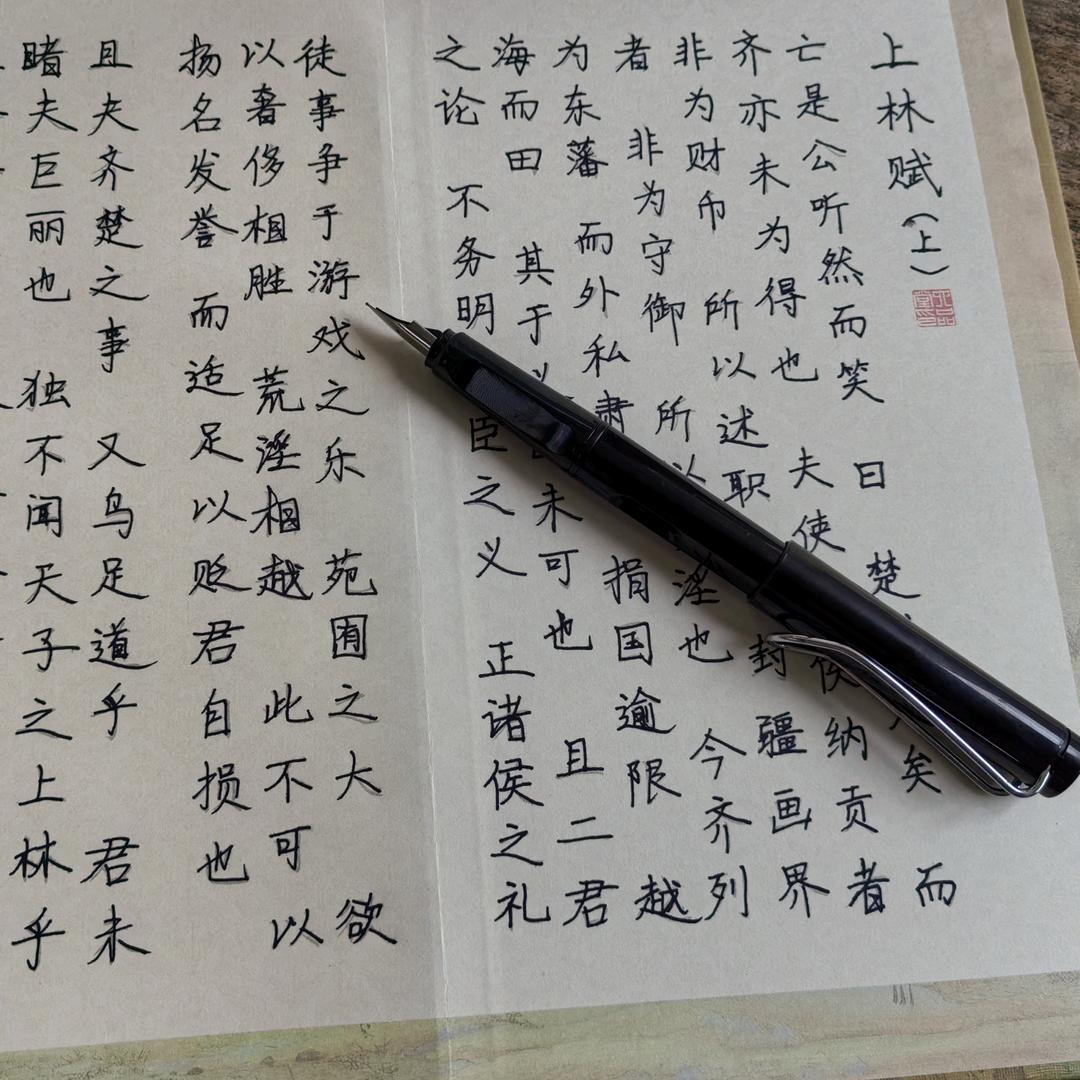 上林赋（上）
亡是公听然而笑 曰 楚 矣 而
齐亦未为得也 夫使 侯纳贡者
非为财币 所以述职 封疆画界
者 非为守御 所以 淫也 今齐列
为东藩 而外私肃 捐国逾限 越
海而田 其于 未可也 且二君
之论 不务明 臣之义 正诸侯之礼
徒事争于游戏之乐 苑囿之大 欲
以奢侈相胜 荒淫相越 此不可以
扬名发誉 而适足以贬君自损也
且夫齐楚之事 又鸟足道乎 君未
睹夫巨丽也 独不闻天子之上林乎